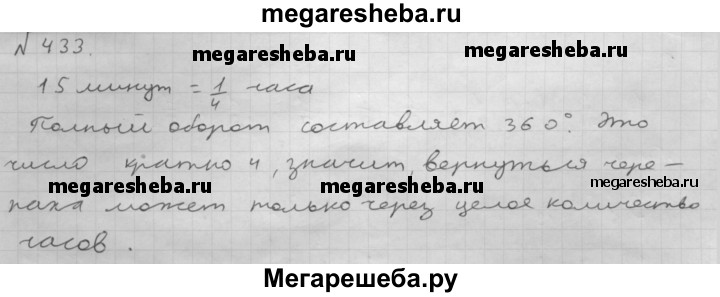 megaresheba.ru
N 433.
megaresheba.ru megaresheba.ru
15 минут = 1/4 часа
Полный оборот составляет 360°. Это
число кратно 4, значит, вернуться чере-
megaresheba.ru megaresheba.ru megaresheba.ru
паха может только через целое количество
часов.
Мегарешеба.ру